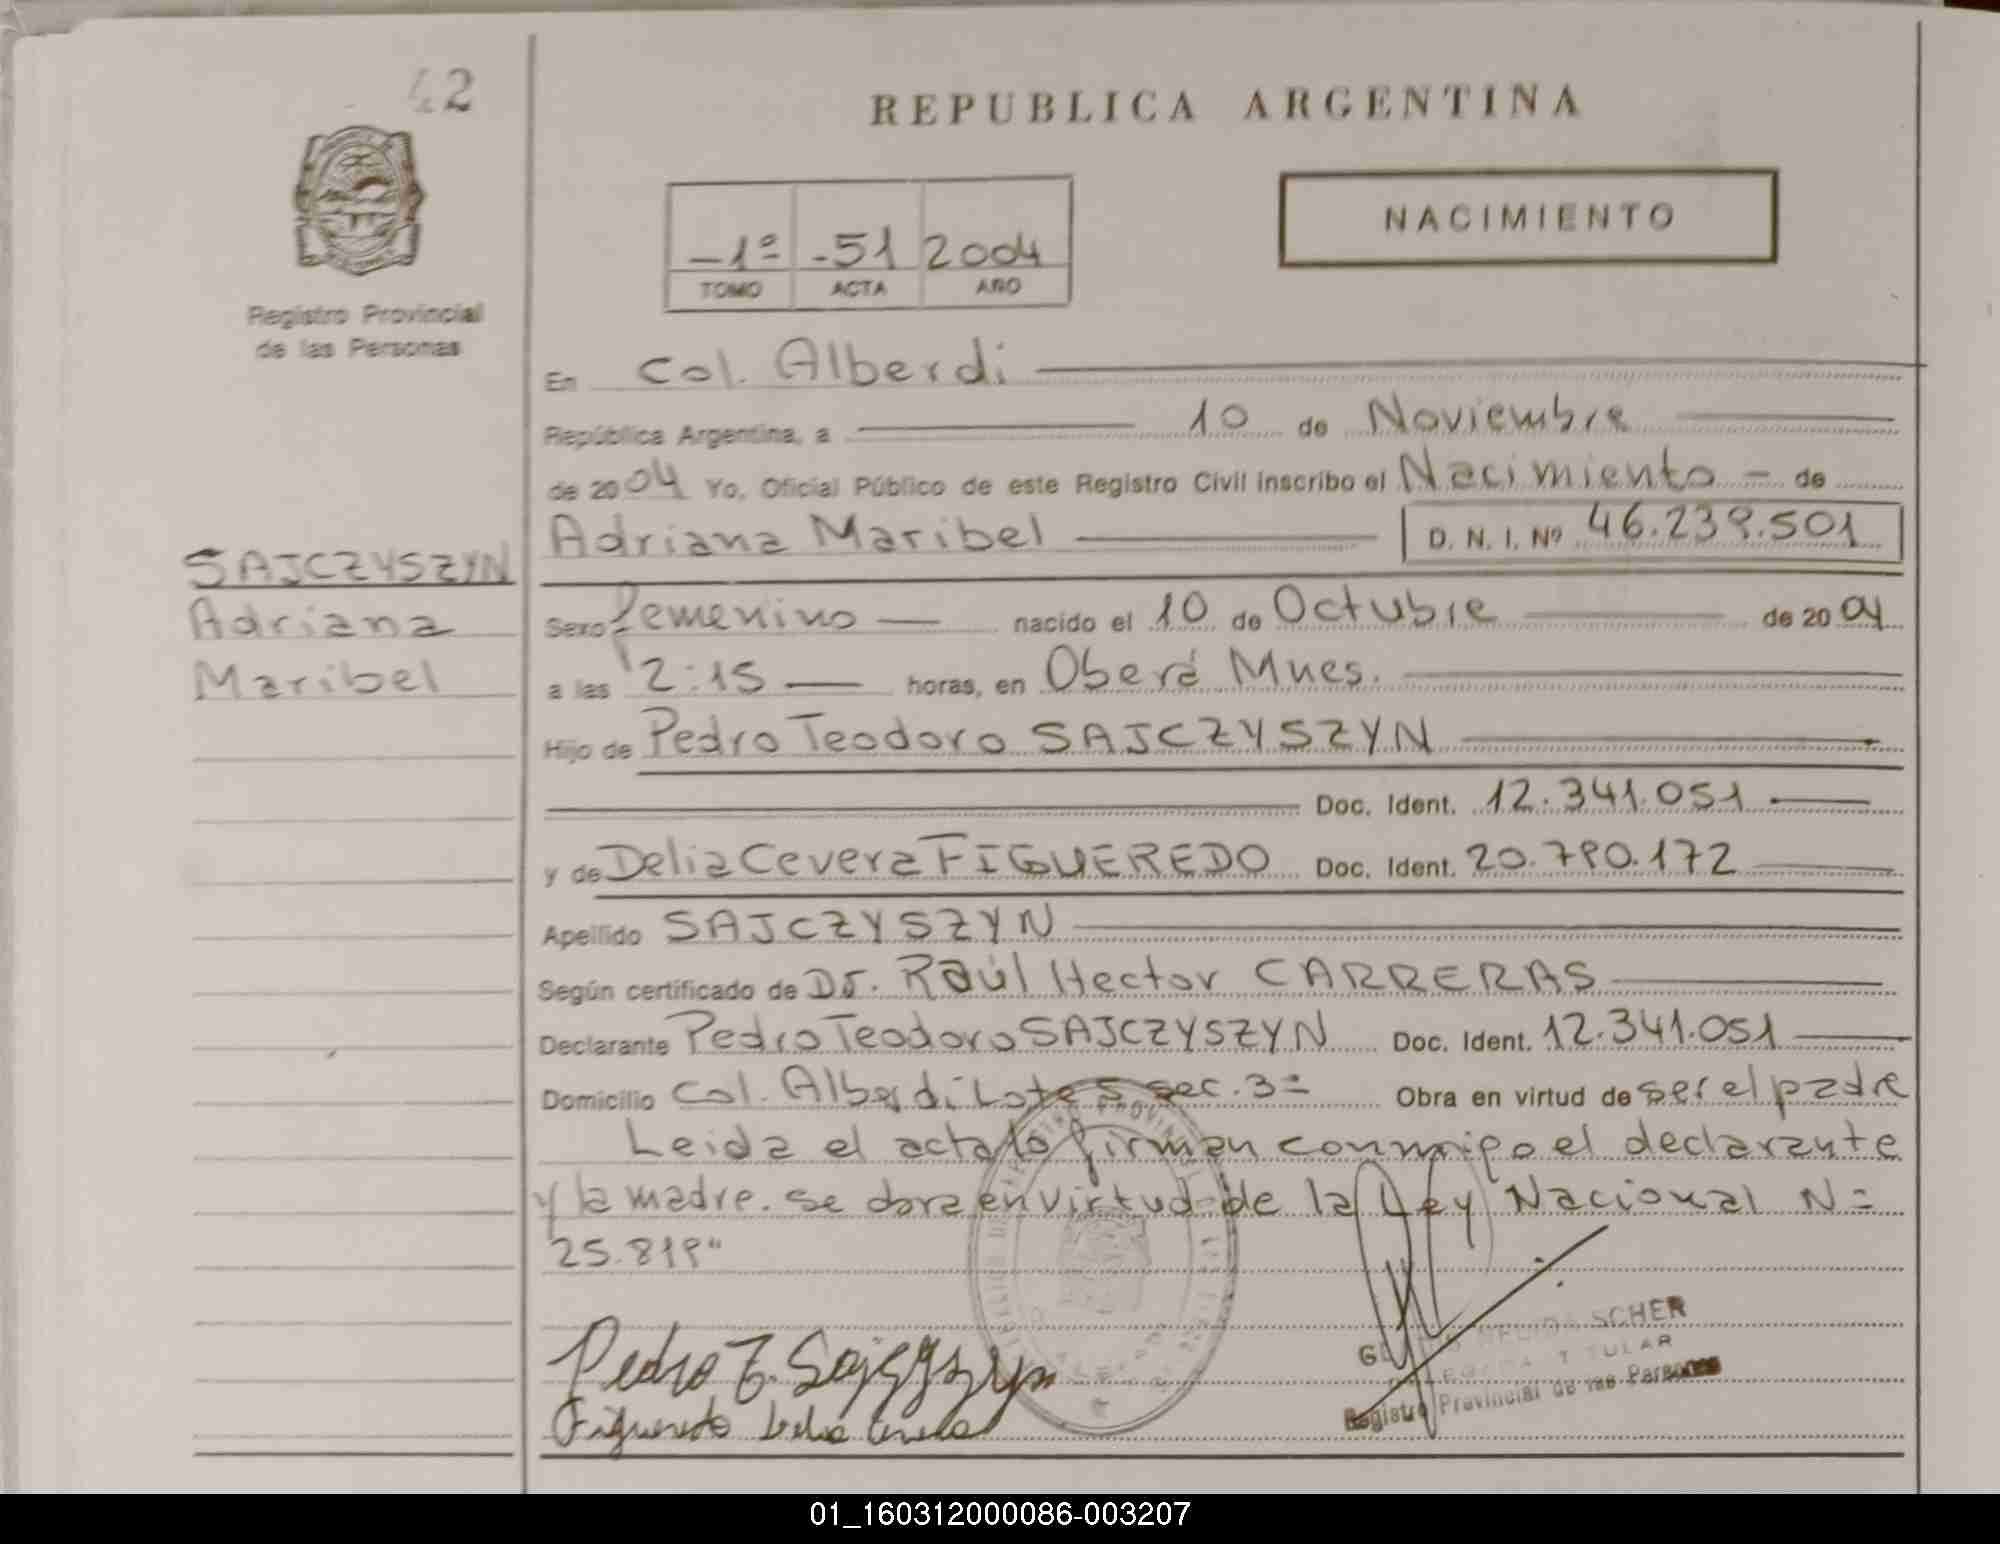 42
REPUBLICA ARGENTINA
NACIMIENTO
-1º -51 2004
TOMO ACTA AÑO
Registro Provincial
de las Personas
En Col. Alberdi
República Argentina, a 10 de Noviembre
de 2004 Yo, Oficial Público de este Registro Civil inscribo el Nacimiento - de
Adriana Maribel D. N. I. Nº 46.239.501
SAJCZYSZYN
Adriana
Maribel
Sexo femenino nacido el 10 de Octubre de 2004
a las 12:15 horas, en Oberá Mnes.
Hijo de Pedro Teodoro SAJCZYSZYN
Doc. Ident. 12.341.051
y de Delia Cevera FIGUEREDO Doc. Ident. 20.790.172
Apellido SAJCZYSZYN
Según certificado de Dr. Raúl Hector CARRERAS
Declarante Pedro Teodoro SAJCZYSZYN Doc. Ident. 12.341.051
Domicilio Col. Alberdi Lote 5 sec. 3º Obra en virtud de ser el padre
Leida el acta la firman conmigo el declarante
y la madre. se obra en virtud de la Ley Nacional Nº
25.819"
Pedro T. Sajczyszyn
Figueredo Delia Cevera
SCHER
TITULAR
Registro Provincial de las Personas
01_160312000086-003207